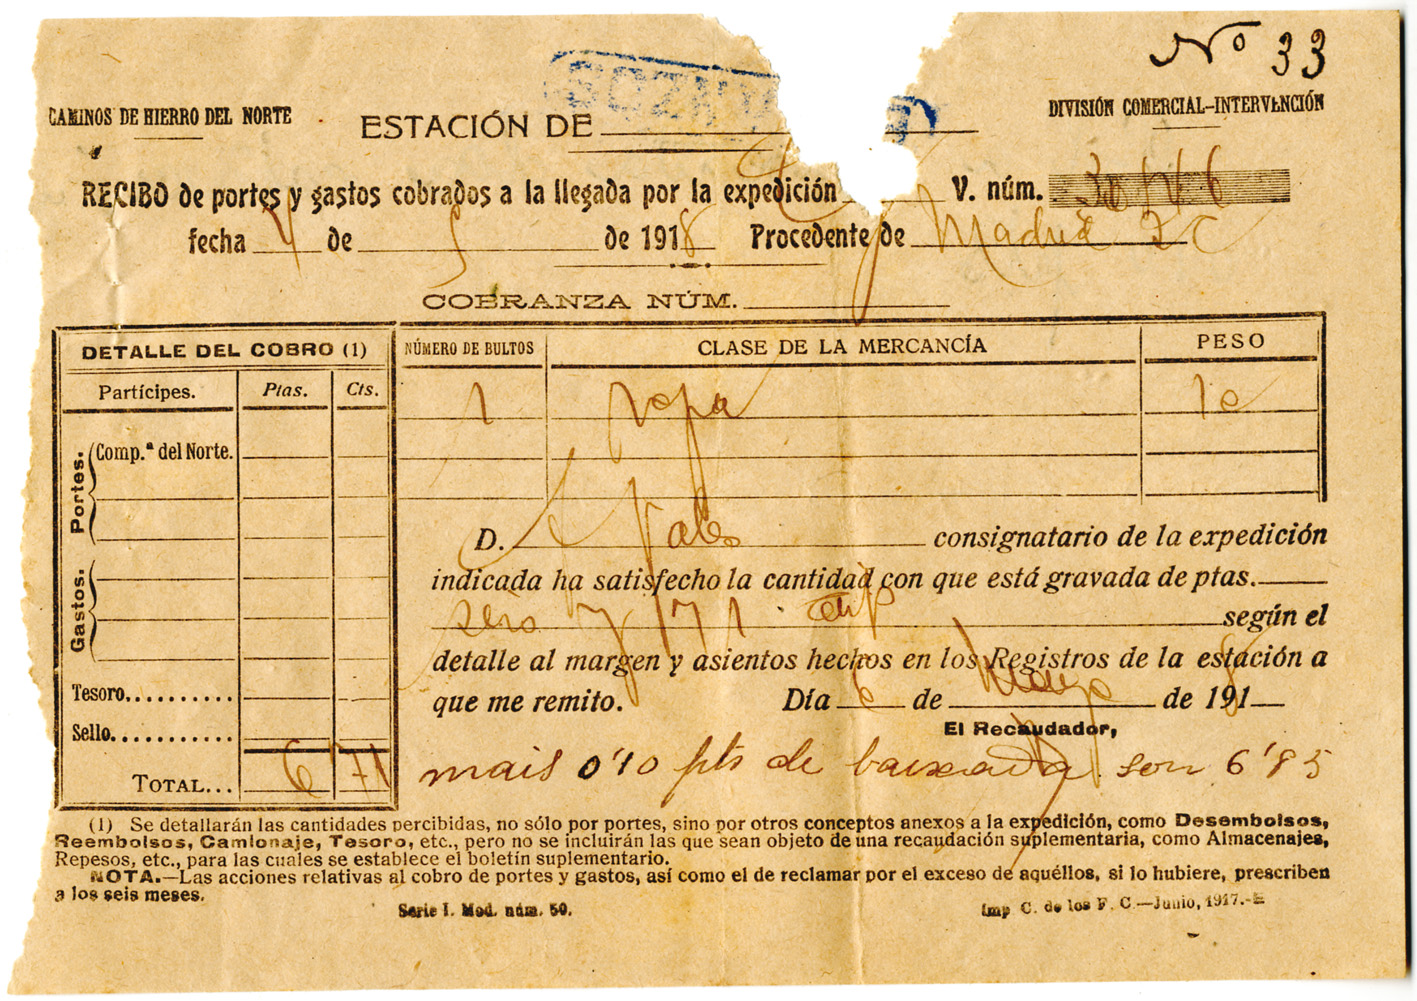 Nº 33
CAMINOS DE HIERRO DEL NORTE
DIVISIÓN COMERCIAL-INTERVENCIÓN
ESTACIÓN DE
RECIBO de portes y gastos cobrados a la llegada por la expedición V. núm.
fecha 4 de 5 de 1918 Procedente de Madrid
COBRANZA NÚM.
DETALLE DEL COBRO (1) NÚMERO DE BULTOS CLASE DE LA MERCANCÍA PESO
Partícipes. Ptas. Cts.
1 ropa 10
Portes. Comp.ª del Norte.
Gastos.
Tesoro..........
Sello...........
TOTAL... 6 71
D. consignatario de la expedición
indicada ha satisfecho la cantidad con que está gravada de ptas.
seis y 71 según el
detalle al margen y asientos hechos en los Registros de la estación a
que me remito. Día 6 de Mayo de 1918
El Recaudador,
mais 0'10 pts de baixada son 6'85
(1) Se detallarán las cantidades percibidas, no sólo por portes, sino por otros conceptos anexos a la expedición, como Desembolsos,
Reembolsos, Camionaje, Tesoro, etc., pero no se incluirán las que sean objeto de una recaudación suplementaria, como Almacenajes,
Repesos, etc., para las cuales se establece el boletín suplementario.
NOTA.—Las acciones relativas al cobro de portes y gastos, así como el de reclamar por el exceso de aquéllos, si lo hubiere, prescriben
a los seis meses.
Serie I. Mod. núm. 50.
Imp C. de los F. C.—Junio, 1917.-E